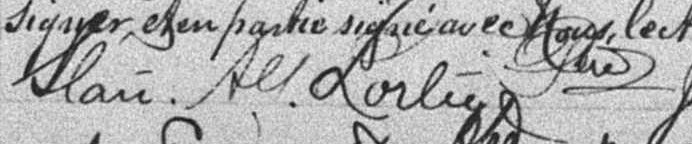 signer, et en partie signé avec Nous, lect
Stan. Alf. Lortie Ptre